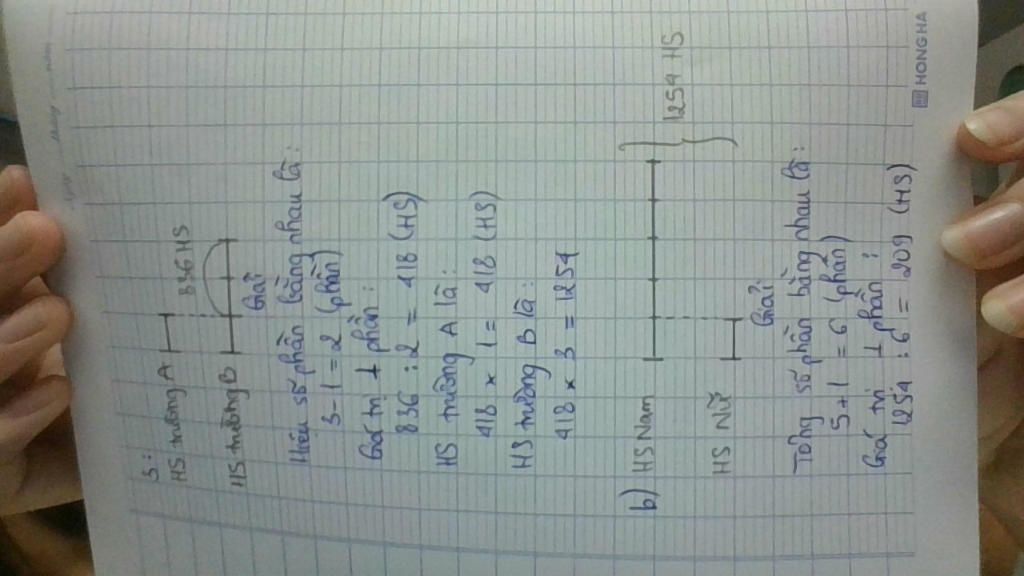 3:
HS trường A
836 HS
HS trường B
Giải
Hiệu số phần bằng nhau là:
3 - 1 = 2 (phần)
Giá trị 1 phần:
836 : 2 = 418 (HS)
HS trường A là:
418 × 1 = 418 (HS)
HS trường B là:
418 × 3 = 1254
b) HS Nam
1254 HS
HS Nữ
Giải:
Tổng số phần bằng nhau là:
5 + 1 = 6 (phần)
Giá trị 1 phần:
1254 : 6 = 209 (HS)
HONG HA